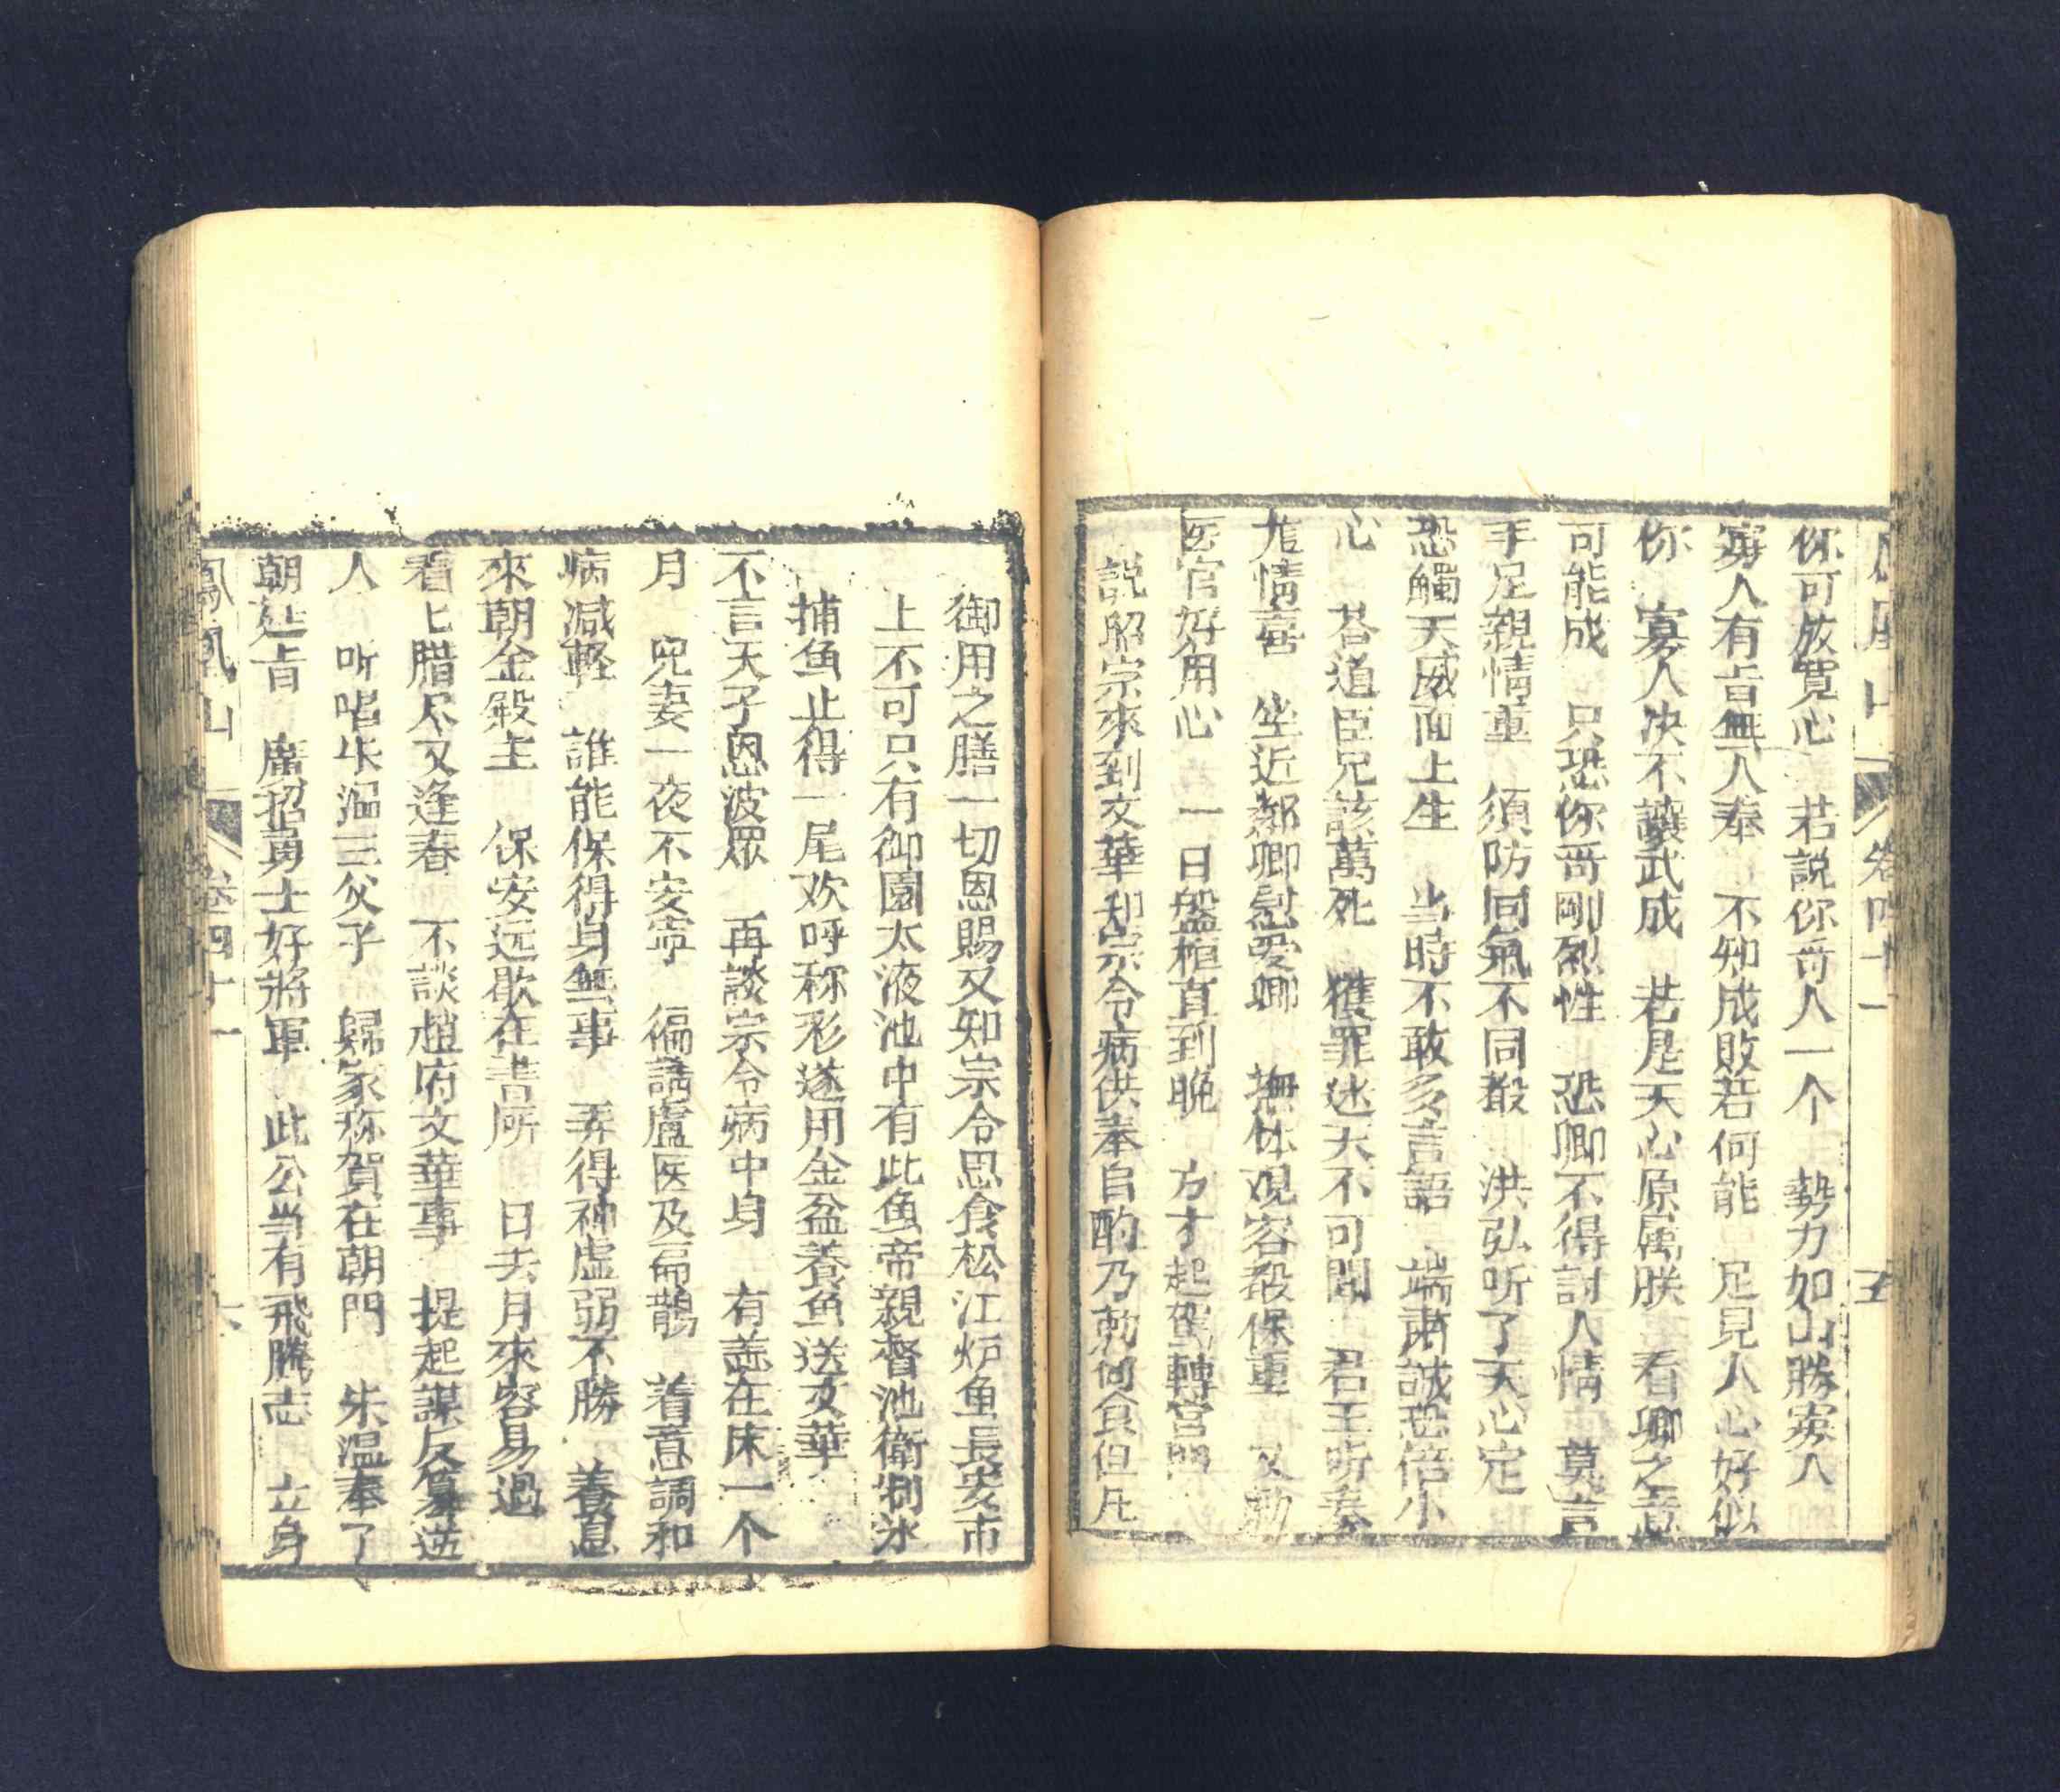 鳳凰山 卷四十一 五
你可放寬心 若說你哥人一个 勢力如山勝寡人
寡人有旨無人奉 不知成敗若何能 足見人心好似
你 寡人决不讓武成 若是天心原属朕 看卿之意
可能成 只恐你哥剛烈性 恐卿不得討人情 莫言
手足親情重 須防同氣不同殽 洪弘听了天心定
恐觸天威面上生 当時不敢多言語 端肅誠恐倍小
心 荅道臣兄該萬死 獲罪迷天不可聞 君王听奏
龍情喜 坐近鄰卿慰愛卿 撫体覌容殺保重 又勅
医官好用心 一日盤桓直到晚 方才起駕轉宮門
説昭宗來到文華知宗令病供奉自酌乃勅何食但凡
御用之膳一切恩賜又知宗令思食松江炉魚長安市
上不可只有御園太液池中有此魚帝親督池衛剃氷
捕魚止得一尾欢呼称彩遂用金盆養魚送文華
不言天子恩波眾 再談宗令病中身 有恙在床一个
月 兒妻一夜不安寧 徧請盧医及扁鵲 着意調和
病減軽 誰能保得身無事 弄得神虛弱不勝 養息
來朝金殿主 保安远歇在書所 日去月來容易過
看上腊尽又逢春 不談趙府文華事 提起謀反篡逆
人 听唱朱溫三父子 歸家称賀在朝門 朱温奉了
朝廷旨 廣招勇士好將軍 此公当有飛騰志 立身
鳳凰山 卷四十一 六